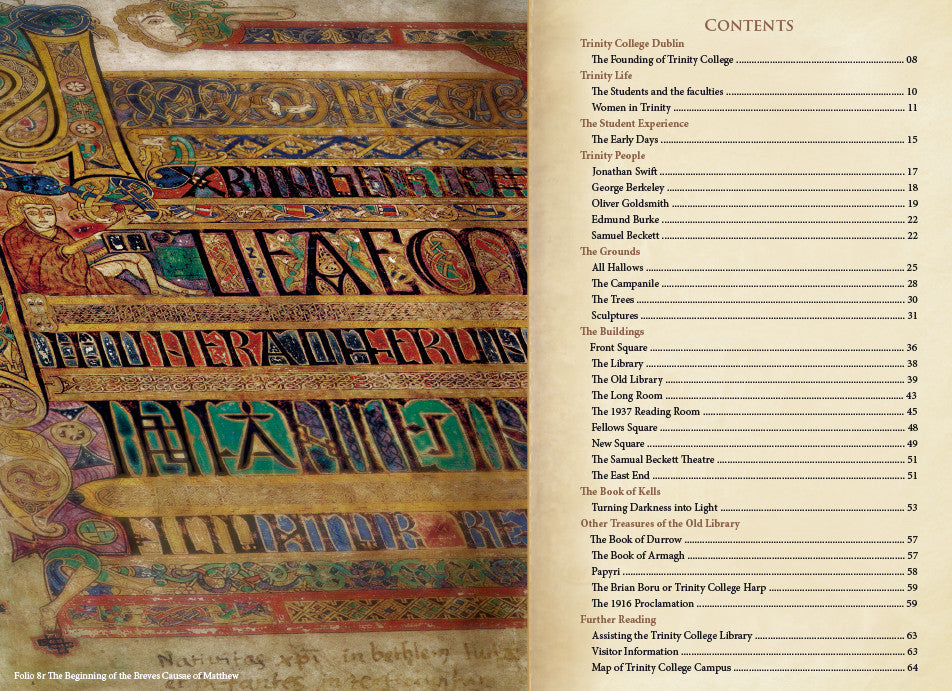 Nativitas xpi in bethlem
Folio 8r The Beginning of the Breves Causae of Matthew
CONTENTS
Trinity College Dublin
The Founding of Trinity College ........ 08
Trinity Life
The Students and the faculties ........ 10
Women in Trinity ........ 11
The Student Experience
The Early Days ........ 15
Trinity People
Jonathan Swift ........ 17
George Berkeley ........ 18
Oliver Goldsmith ........ 19
Edmund Burke ........ 22
Samuel Beckett ........ 22
The Grounds
All Hallows ........ 25
The Campanile ........ 28
The Trees ........ 30
Sculptures ........ 31
The Buildings
Front Square ........ 36
The Library ........ 38
The Old Library ........ 39
The Long Room ........ 43
The 1937 Reading Room ........ 45
Fellows Square ........ 48
New Square ........ 49
The Samual Beckett Theatre ........ 51
The East End ........ 51
The Book of Kells
Turning Darkness into Light ........ 53
Other Treasures of the Old Library
The Book of Durrow ........ 57
The Book of Armagh ........ 57
Papyri ........ 58
The Brian Boru or Trinity College Harp ........ 59
The 1916 Proclamation ........ 59
Further Reading
Assisting the Trinity College Library ........ 63
Visitor Information ........ 63
Map of Trinity College Campus ........ 64